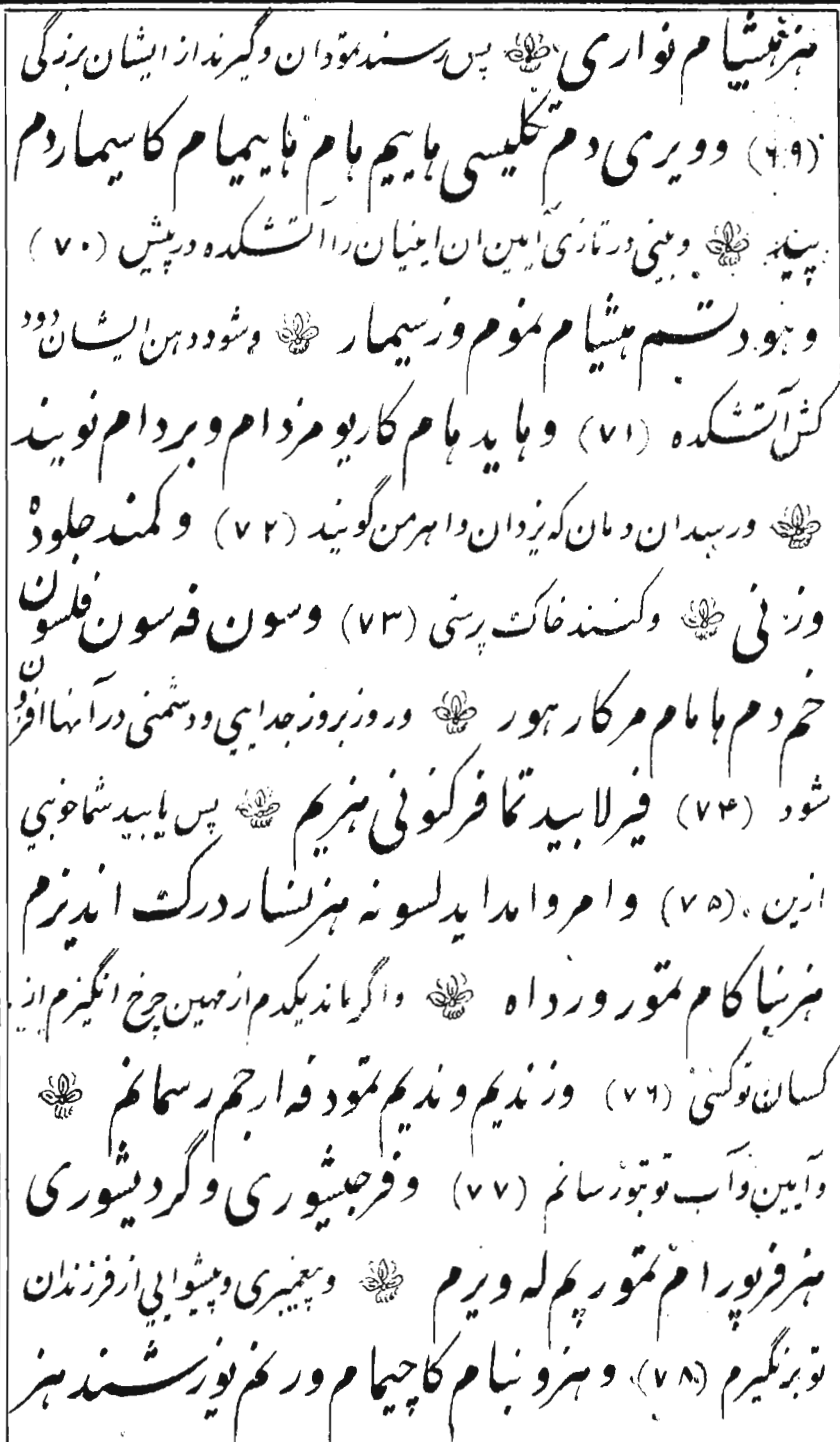 هنز هیشام نواری ❀ پس رسند نودان و گیرند از ایشان بزرگی
(۶۹) و ویری دم تکلیسی هاییم هام هاییمیام کاسیماردم
پیند ❀ و بینی در تازی آیین ان اینیان را آتشکده در پیش (۷۰)
و هنود تسم هیشام نموم ورسیمار ❀ و شود دهن ایشان دود
کش آتشکده (۷۱) و هاید هام کاریو مزدام و بردام نویند
❀ و رسیدان دمان که یزدان و اهرمن گویند (۷۲) و کمند جلوده
وزنی ❀ و کنند خاک پرستی (۷۳) و سون فه سون فلسون
خم دم هامام مرکار هور ❀ و روز بروز جدایی و دشمنی در آنها افزون
شود (۷۴) فیرلابید تما فرکنونی هنریم ❀ پس یابید شما خوبی
ازین (۷۵) و امر وامداید لسونه هنرنسار درک اندیزم
هنرنباکام نمتور ورداه ❀ و اگر ماند یکدم از مهین چرخ انگیزم از
کسان تو کسی (۷۶) وزندیم و ندیم نمتود فه ارجم رسمانم ❀
و آیین و آب تو بتو رسانم (۷۷) و فرجیشوری و گردیشوری
هنرفرپورام نمتور یم له ویرم ❀ و پیغمبری و پیشوایی از فرزندان
تو برنگیرم (۷۸) و هنرونبام کاچیمام ورنم نورشند هنر